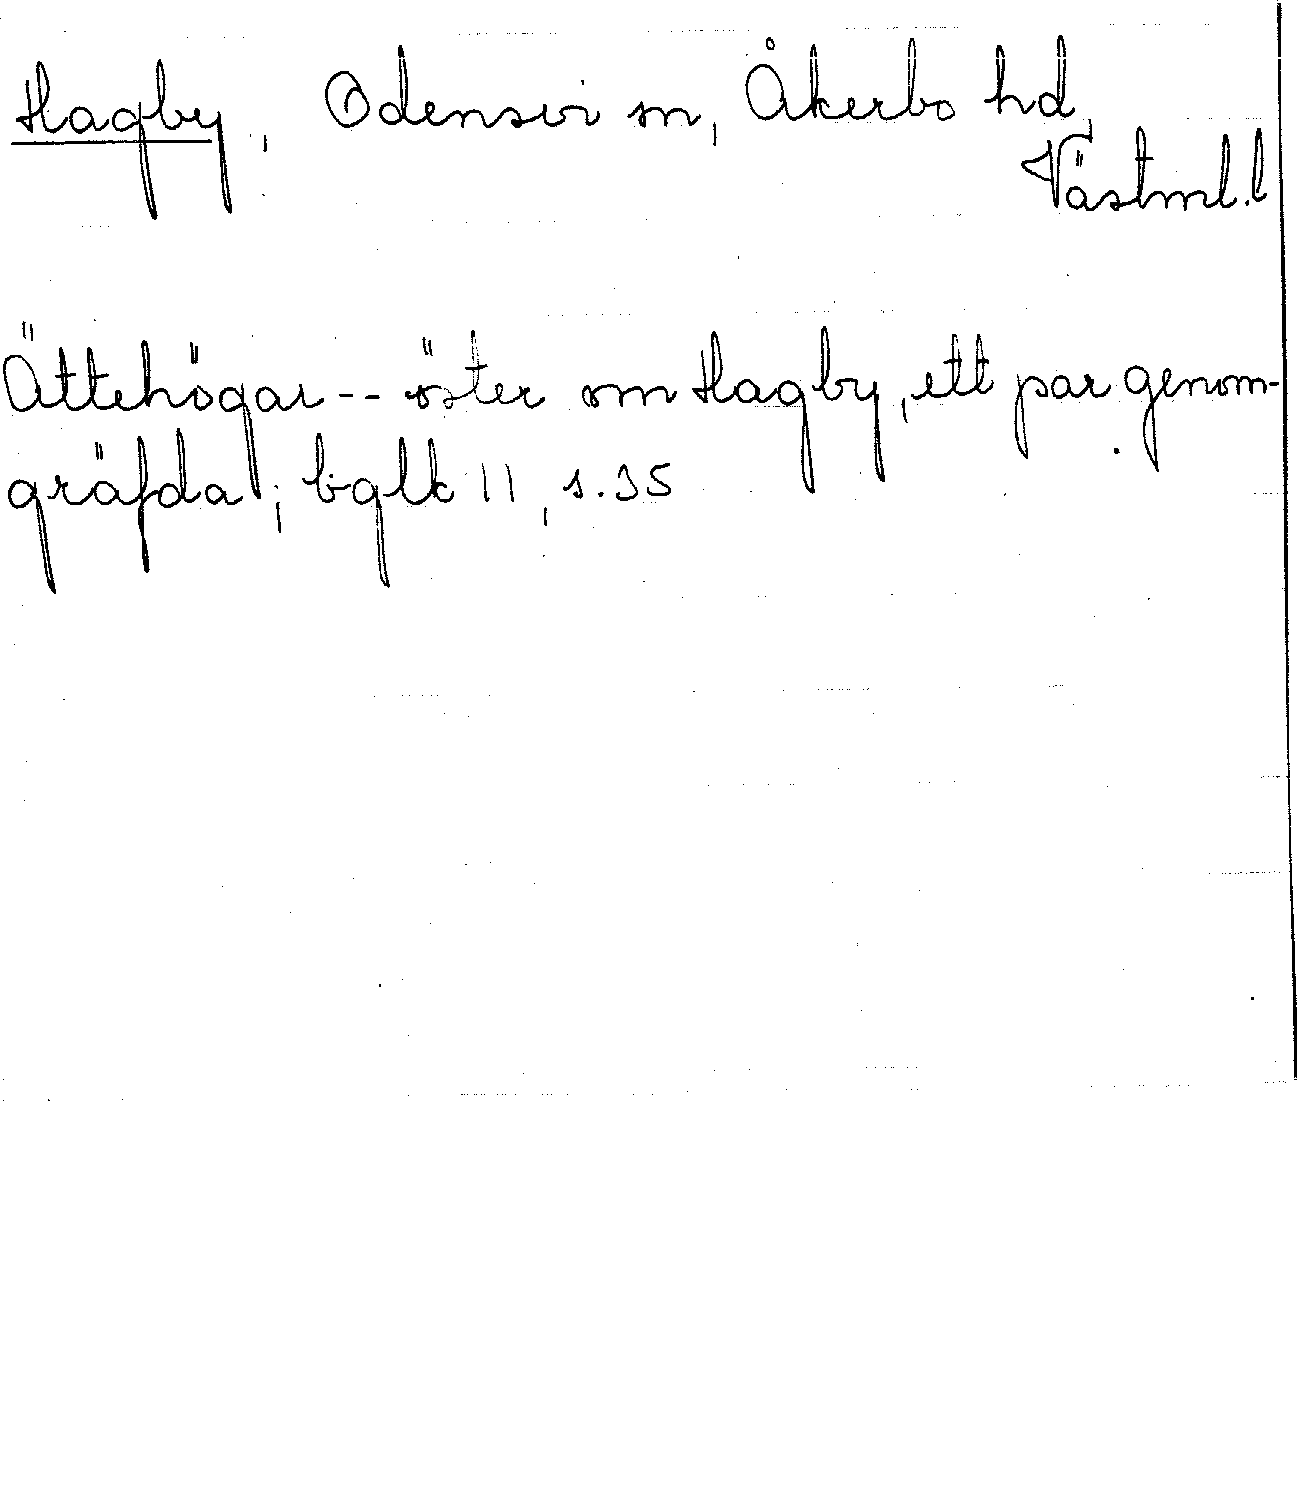 Hagby, Odensvi sn, Åkerbo hd,
Västml. l
Ättehögar -- öster om Hagby, ett par genom-
gräfda; bglk 11, s. 35